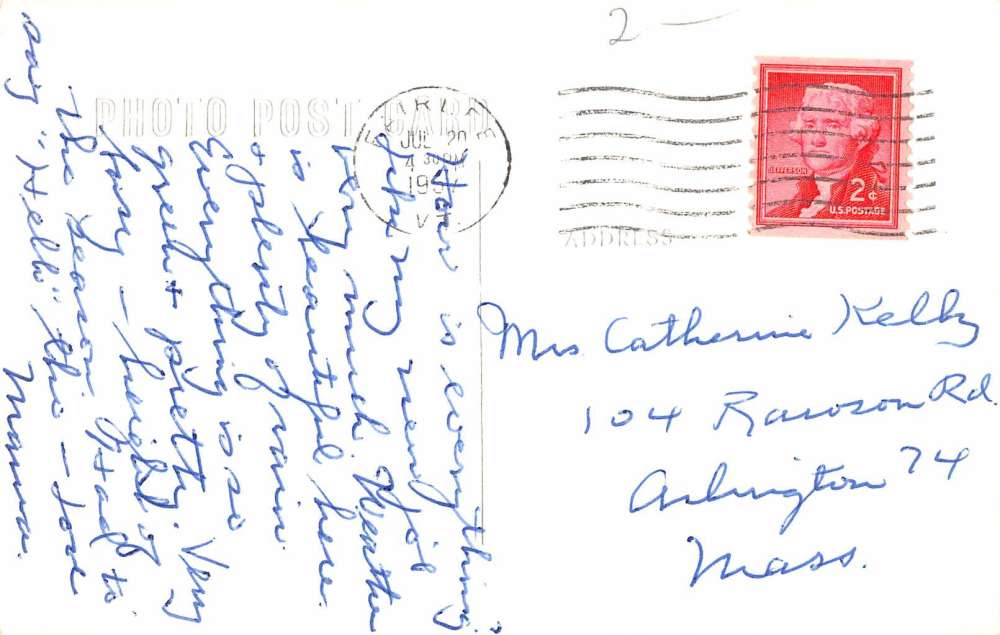 2
PHOTO POST CARD
JUL 20
4 30 PM
19
VT.
JEFFERSON
2¢
U.S. POSTAGE
ADDRESS
How is everything?
my new job
very much. Weather
is beautiful here
+ plenty of rain.
Everything is so
green + pretty. Very
busy — height of
the season. Had to
say "Hello", this — love
Mama.
Mrs. Catherine Kelly
104 Rd.
Arlington 74
Mass.